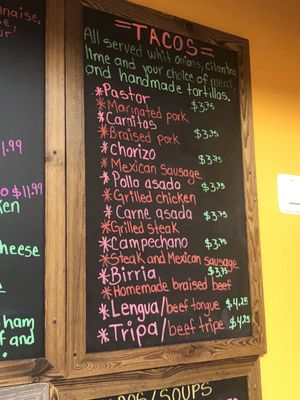 =TACOS=
All served whit onions, cilantro
lime and your choice of meat
and handmade tortillas.
*Pastor
*Marinated pork $3.75
*Carnitas
*Braised pork $3.75
*Chorizo
*Mexican sausage $3.75
*Pollo asado $3.75
*Grilled chicken
*Carne asada $3.75
*Grilled steak
*Campechano $3.75
*Steak and Mexican sausage
*Birria $3.75
*Homemade braised beef
*Lengua/beef tongue $4.25
*Tripa/beef tripe $4.25
/SOUPS
naise,
1.99
$11.99
ken
cheese
ham
f and